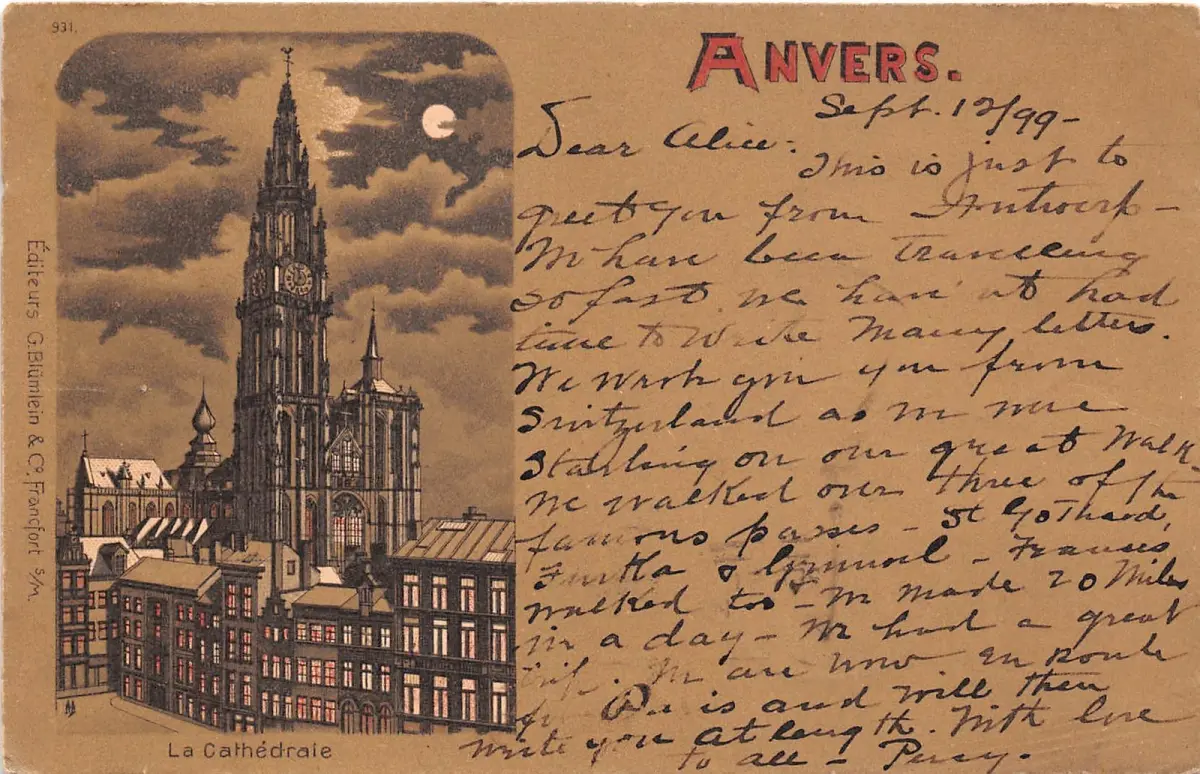 931.
ANVERS.
Sept. 12/99-
Dear Alice:
This is just to
greet you from Antwerp -
We have been travelling
so fast we haven't had
time to write many letters.
We wrote you from
Switzerland as we were
starting on our great walk
We walked over three of the
famous passes - St Gothard,
Furka & Grimsel - Frances
walked too - We made 20 miles
in a day - We had a great
trip. We are now en route
for Paris and will then
write you at length. With love
to all - Percy.
Éditeurs G. Blümlein & Co. Francfort s/M.
La Cathédrale